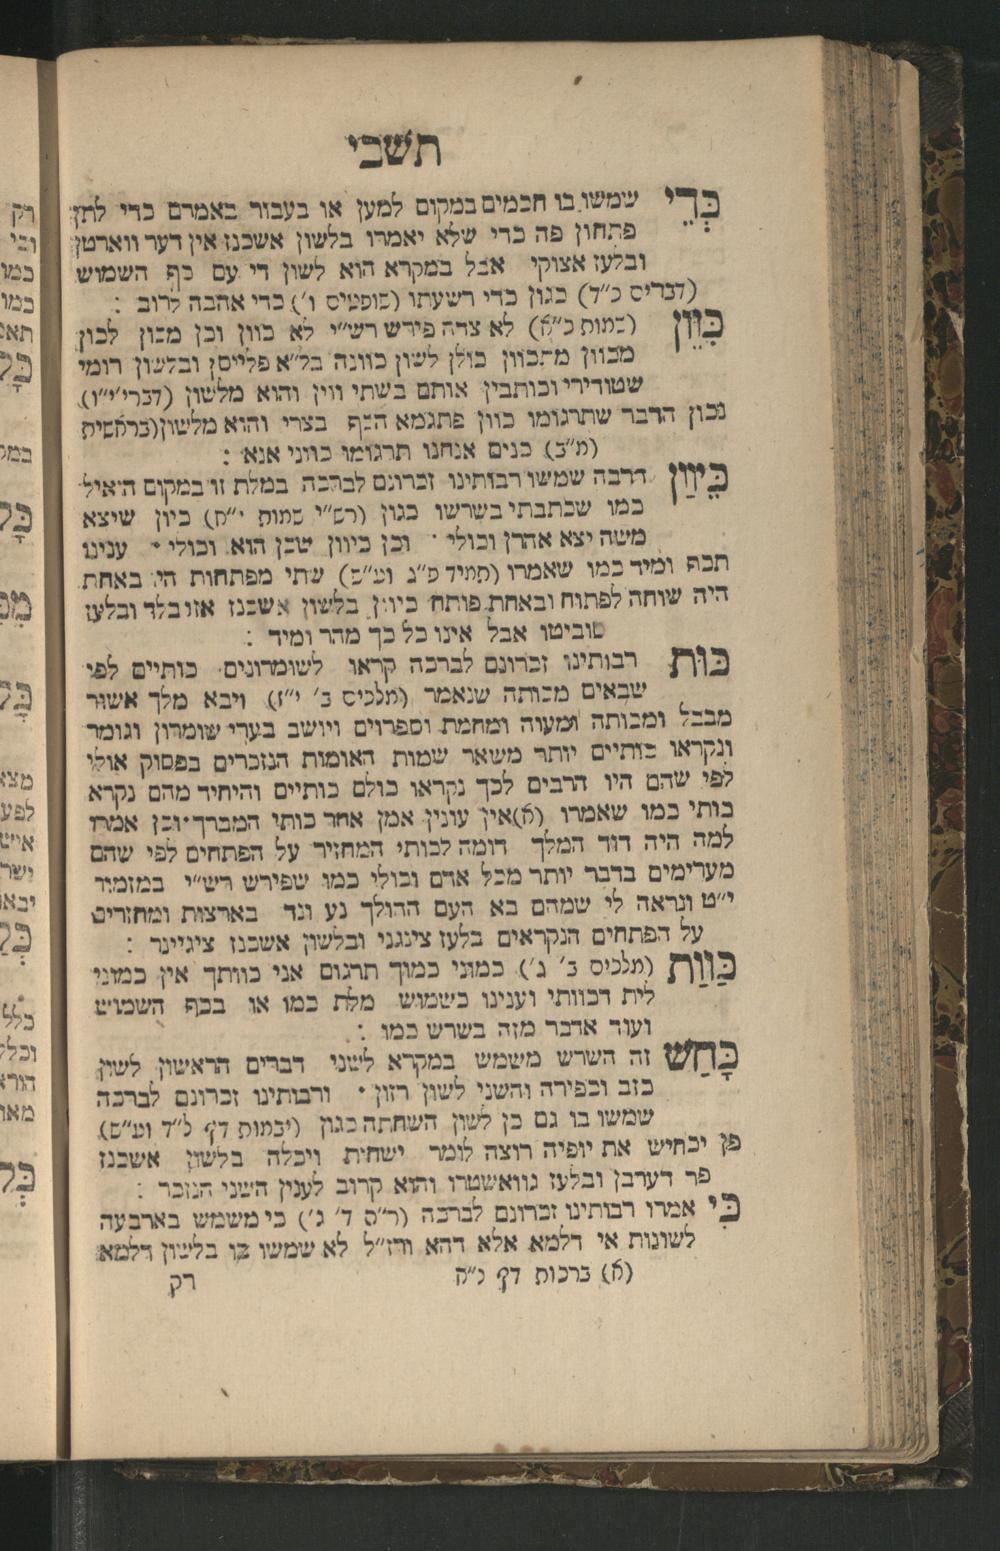 תשבי
כְּדֵי שמשו בו חכמים במקום למען או בעבור באמרם כדי לתן
פתחון פה כדי שלא יאמרו בלשון אשכנז אין דער ווארטן
ובלעז אצוקי אבל במקרא הוא לשון די עם כף השמוש
(דברים כ״ד) כגון כדי רשעתו (שופטים ו׳) כדי אהבה לרוב :
כִּוֵּן (שמות כ״א) לא צדה פירש רש״י לא כוון וכן מכון לכון
מכוון מתכוון כולן לשון כוונה בל״א פלייסן ובלשון רומי
שטודירי וכותבין אותם בשתי ווין והוא מלשון (דברי׳ י״ו)
נכון הדבר שתרגומו כוון פתגמא הכף בצרי והוא מלשון (בראשית
(מ״ב) כנים אנחנו תרגומו כווני אנא :
כֵּיוַן דרבה שמשו רבותינו זכרונם לברכה במלת זו במקום הואיל
כמו שכתבתי בשרשו כגון (רש״י שמות י״ח) כיון שיצא
משה יצא אהרן וכולי · וכן כיוון שכן הוא וכולי · ענינו
תכף ומיד כמו שאמרו (תמיד פ״ג וע״ש) שתי מפתחות היו באחת
היה שוחה לפתוח ובאחת פותח כיון בלשון אשכנז אזו בלד ובלעז
סוביטו אבל אינו כל כך מהר ומיד :
כּוּת רבותינו זכרונם לברכה קראו לשומרונים כותיים לפי
שבאים מכותה שנאמר (מלכים ב׳ י״ז) ויבא מלך אשור
מבבל ומכותה ומעוה ומחמת וספרוים ויושב בערי שומרון וגומר
ונקראו כותיים יותר משאר שמות האומות הנזכרים בפסוק אולי
לפי שהם היו הרבים לכך נקראו כולם כותיים והיחיד מהם נקרא
כותי כמו שאמרו (א) אין עונין אמן אחר כותי המברך · וכן אמרו
למה היה דוד המלך דומה לכותי המחזיר על הפתחים לפי שהם
מערימים בדבר יותר מכל אדם וכולי כמו שפירש רש״י במזמור
י״ט ונראה לי שמהם בא העם ההולך נע ונד בארצות ומחזרים
על הפתחים הנקראים בלעז צינגני ובלשון אשכנז ציגיינר :
כַּוַּת (מלכים ב׳ ג׳) כמוני כמוך תרגום אני כוותך אין כמוני
לית דכוותי וענינו כשמוש מלת כמו או בכף השמוש
ועוד אדבר מזה בשרש כמו :
כָּחַש זה השרש משמש במקרא לשני דברים הראשון לשון
כזב וכפירה והשני לשון רזון · ורבותינו זכרונם לברכה
שמשו בו גם כן לשון השחתה כגון (יבמות דף ל״ד וע״ש)
פן יכחיש את יופיה רוצה לומר ישחית ויכלה בלשון אשכנז
פר דערבן ובלעז גוואשטרו והוא קרוב לענין השני הנזכר :
כִּי אמרו רבותינו זכרונם לברכה (ר״ס ד׳ ג׳) כי משמש בארבעה
לשונות אי דלמא אלא דהא ורז״ל לא שמשו בו בלשון דלמא
(א) ברכות דף כ״ח רק